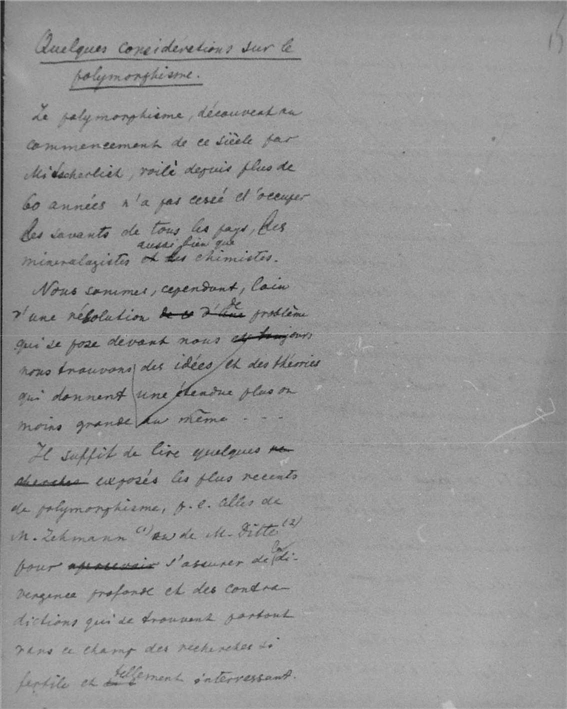 Quelques considérations sur le
polymorphisme.
Le polymorphisme, découvert au
commencement de ce siècle par
Mitscherlich, voilà depuis plus de
60 années n'a pas cessé d'occuper
les savants de tous les pays, des
aussi bien que
mineralogistes et les chimistes.
Nous sommes, cependant, loin
d'une résolution de ce d'une de problème
qui se pose devant nous et toujours
nous trouvons des idées et des théories
qui donnent une étendue plus ou
moins grande au même - - -
Il suffit de lire quelques re-
cherches exposés les plus recents
de polymorphisme, p. e. celles de
M. Lehmann (1) ou de M. Ditte (2)
pour s'assurer de la di-
vergence profonde et des contra-
dictions qui se trouvent partout
dans ce champ des recherches si
fertile et tellement interressant.